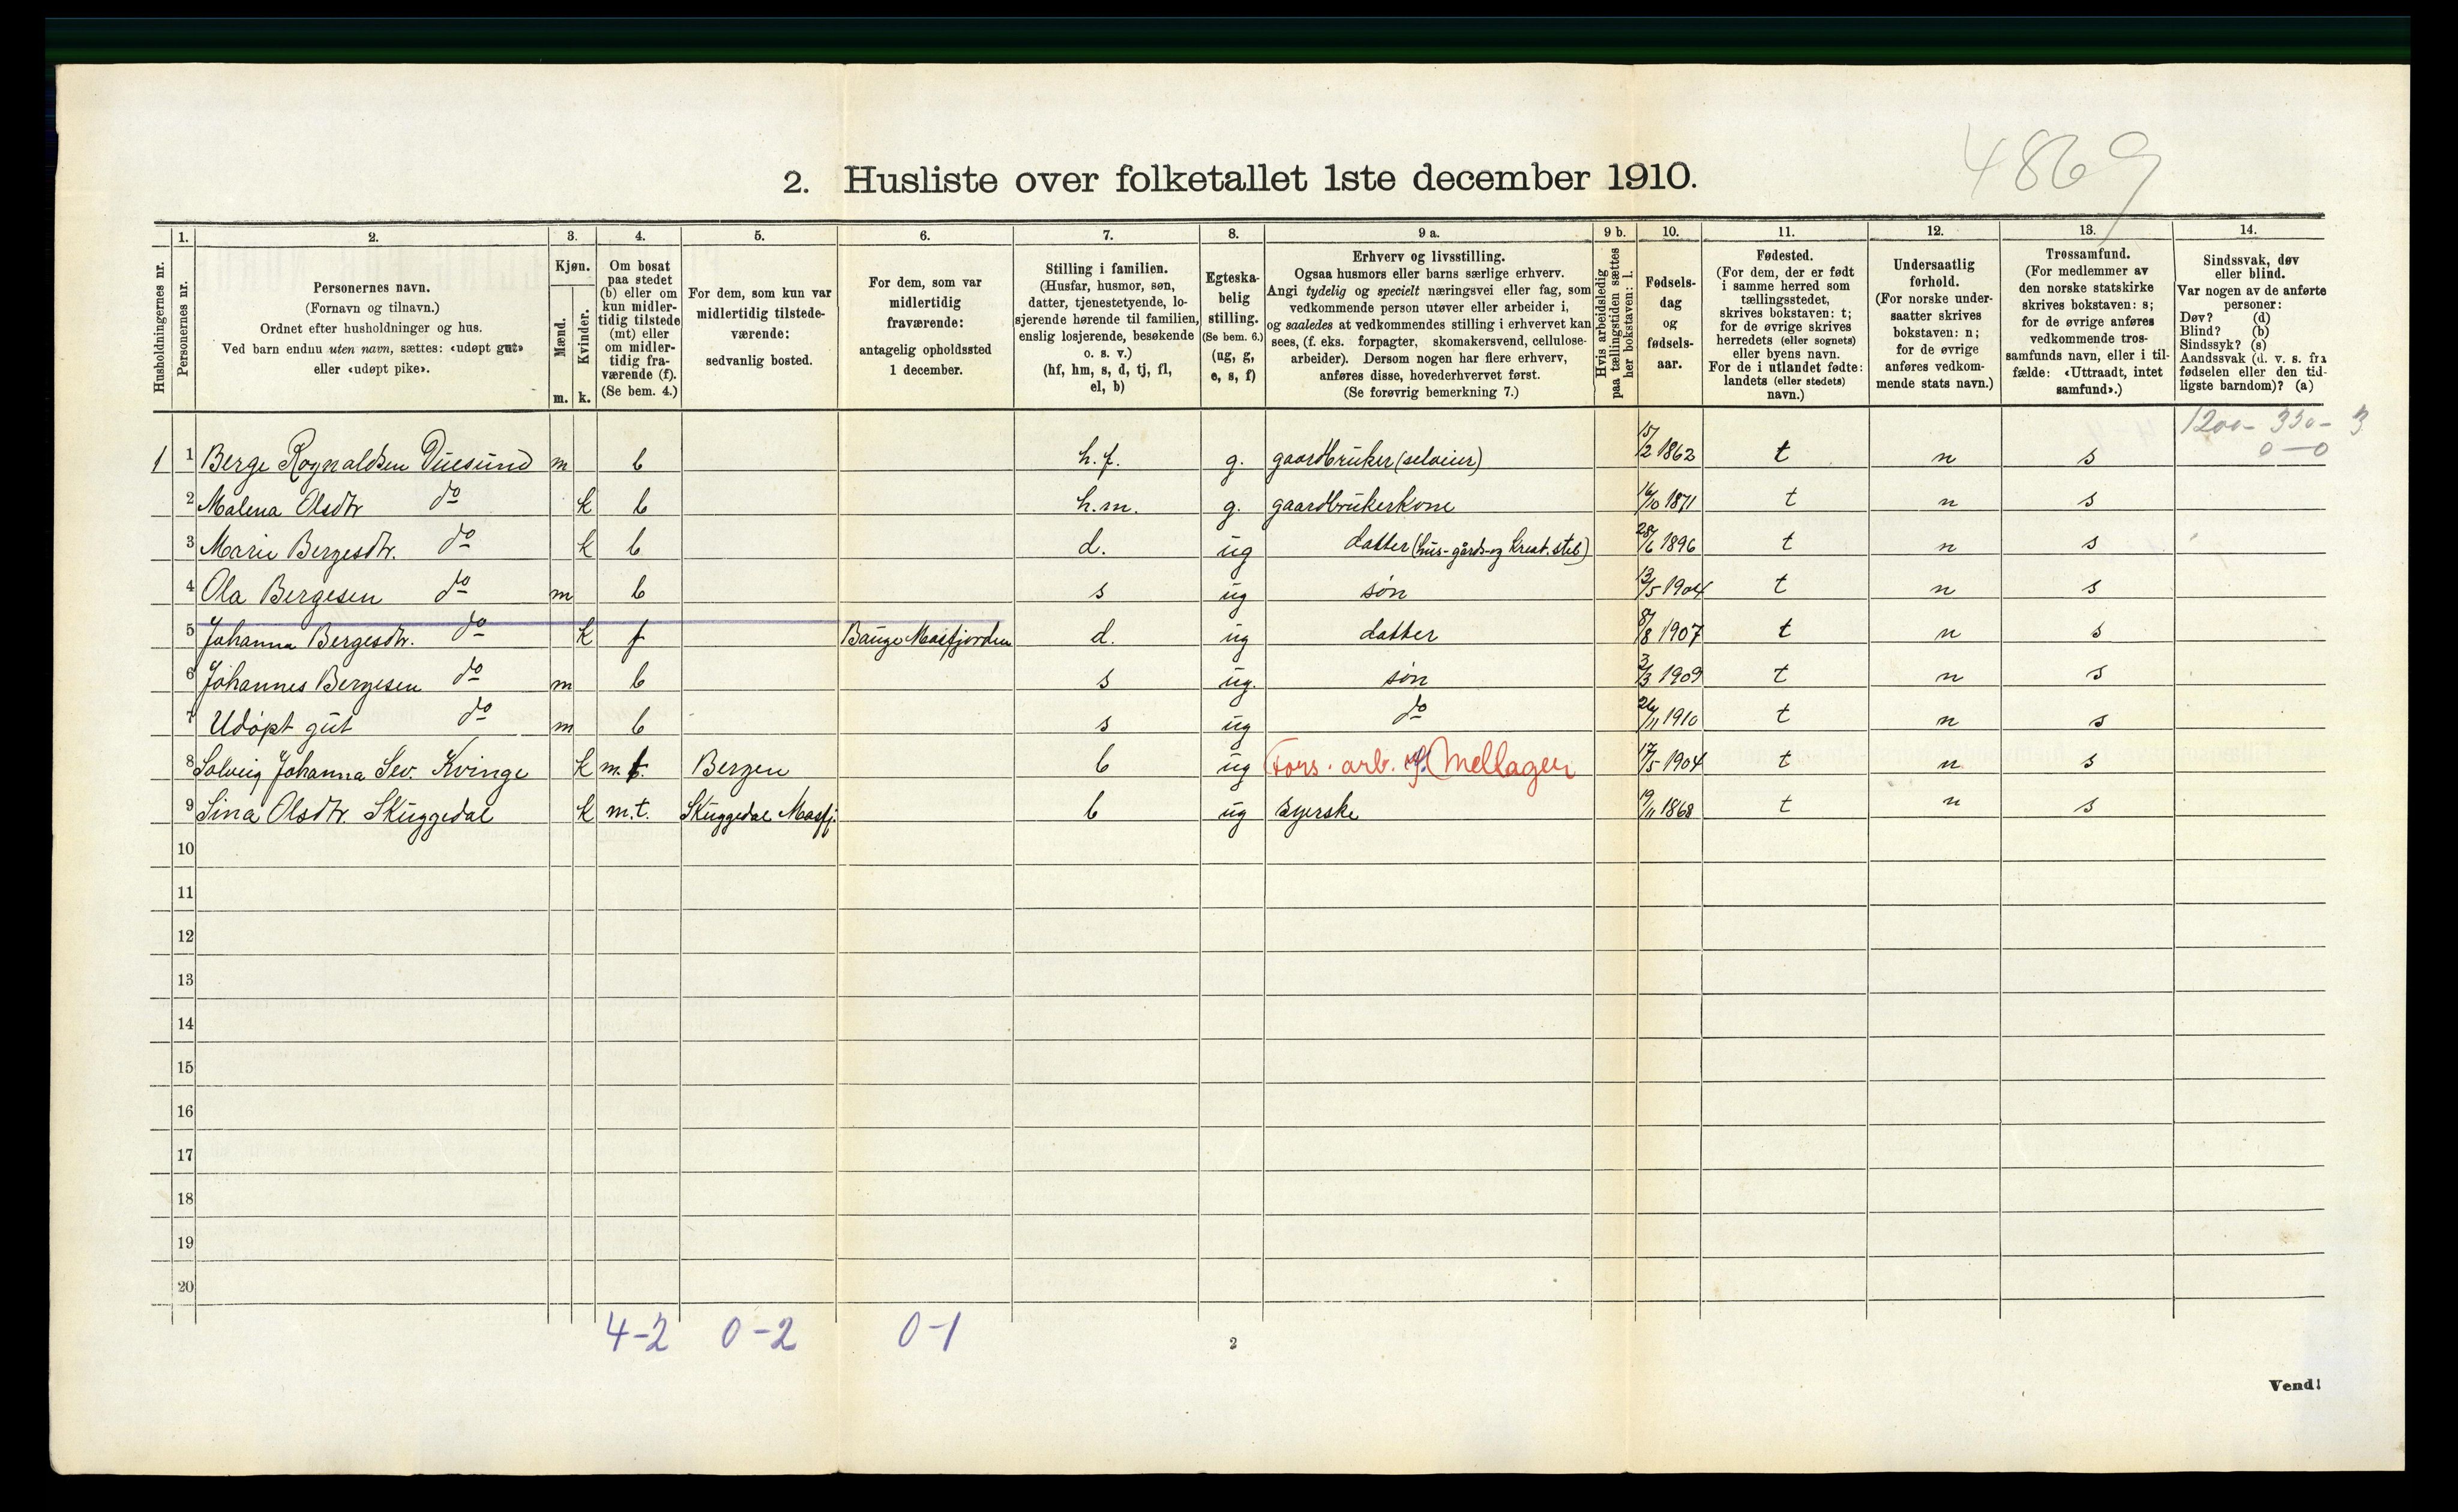 4869
2. Husliste over folketallet 1ste december 1910.
Husholdningernes nr.
1.
Personernes nr.
2.
Personernes navn.
(Fornavn og tilnavn.)
Ordnet efter husholdninger og hus.
Ved barn endnu uten navn, sættes: «udøpt gut»
eller «udøpt pike».
3.
Kjøn.
Mænd.
Kvinder.
m. k.
4.
Om bosat
paa stedet
(b) eller om
kun midler-
tidig tilstede
(mt) eller
om midler-
tidig fra-
værende (f).
(Se bem. 4.)
5.
For dem, som kun var
midlertidig tilstede-
værende:
sedvanlig bosted.
6.
For dem, som var
midlertidig
fraværende:
antagelig opholdssted
1 december.
7.
Stilling i familien.
(Husfar, husmor, søn,
datter, tjenestetyende, lo-
sjerende hørende til familien,
enslig losjerende, besøkende
o. s. v.)
(hf, hm, s, d, tj, fl,
el, b)
8.
Egteska-
belig
stilling.
(Se bem. 6.)
(ug, g,
e, s, f)
9 a.
Erhverv og livsstilling.
Ogsaa husmors eller barns særlige erhverv.
Angi tydelig og specielt næringsvei eller fag, som
vedkommende person utøver eller arbeider i,
og saaledes at vedkommendes stilling i erhvervet kan
sees, (f. eks. forpagter, skomakersvend, cellulose-
arbeider). Dersom nogen har flere erhverv,
anføres disse, hovederhvervet først.
(Se forøvrig bemerkning 7.)
9 b.
Hvis arbeidsledig
paa tællingstiden sættes
her bokstaven: l.
10.
Fødsels-
dag
og
fødsels-
aar.
11.
Fødested.
(For dem, der er født
i samme herred som
tællingsstedet,
skrives bokstaven: t;
for de øvrige skrives
herredets (eller sognets)
eller byens navn.
For de i utlandet fødte:
landets (eller stedets)
navn.)
12.
Undersaatlig
forhold.
(For norske under-
saatter skrives
bokstaven: n;
for de øvrige
anføres vedkom-
mende stats navn.)
13.
Trossamfund.
(For medlemmer av
den norske statskirke
skrives bokstaven: s;
for de øvrige anføres
vedkommende tros-
samfunds navn, eller i til-
fælde: «Uttraadt, intet
samfund».)
14.
Sindssvak, døv
eller blind.
Var nogen av de anførte
personer:
Døv? (d)
Blind? (b)
Sindssyk? (s)
Aandssvak (d. v. s. fra
fødselen eller den tid-
ligste barndom)? (a)
1200- 330- 3
0-0
1 1 Berge Rognaldsen Duesund m b h.f. g. gaardbruker (selveier) 15/2 1862 t n s
2 Malena Olsdtr do k b h.m. g. gaardbrukerkone 16/10 1871 t n s
3 Marie Bergesdtr. do k b d. ug datter (hus-gårds-og kreat. stel) 28/6 1896 t n s
4 Ola Bergesen do m b s ug søn 13/5 1904 t n s
5 Johanna Bergesdtr. do k f Bauge Masfjorden d. ug datter 8/8 1907 t n s
6 Johannes Bergesen do m b s ug. søn 3/3 1909 t n s
7 Udøpt gut do m b s ug do 26/11 1910 t n s
8 Solveig Johanna Sev. Kvinge k m.t. Bergen b ug Fors. arb. af Mellager 17/5 1904 t n s
9 Sina Olsdtr Skuggedal k m.t. Skuggedal Masfj. b ug syerske 19/11 1868 t n s
10
11
12
13
14
15
16
17
18
19
20
4-2 0-2 0-1
2
Vend!